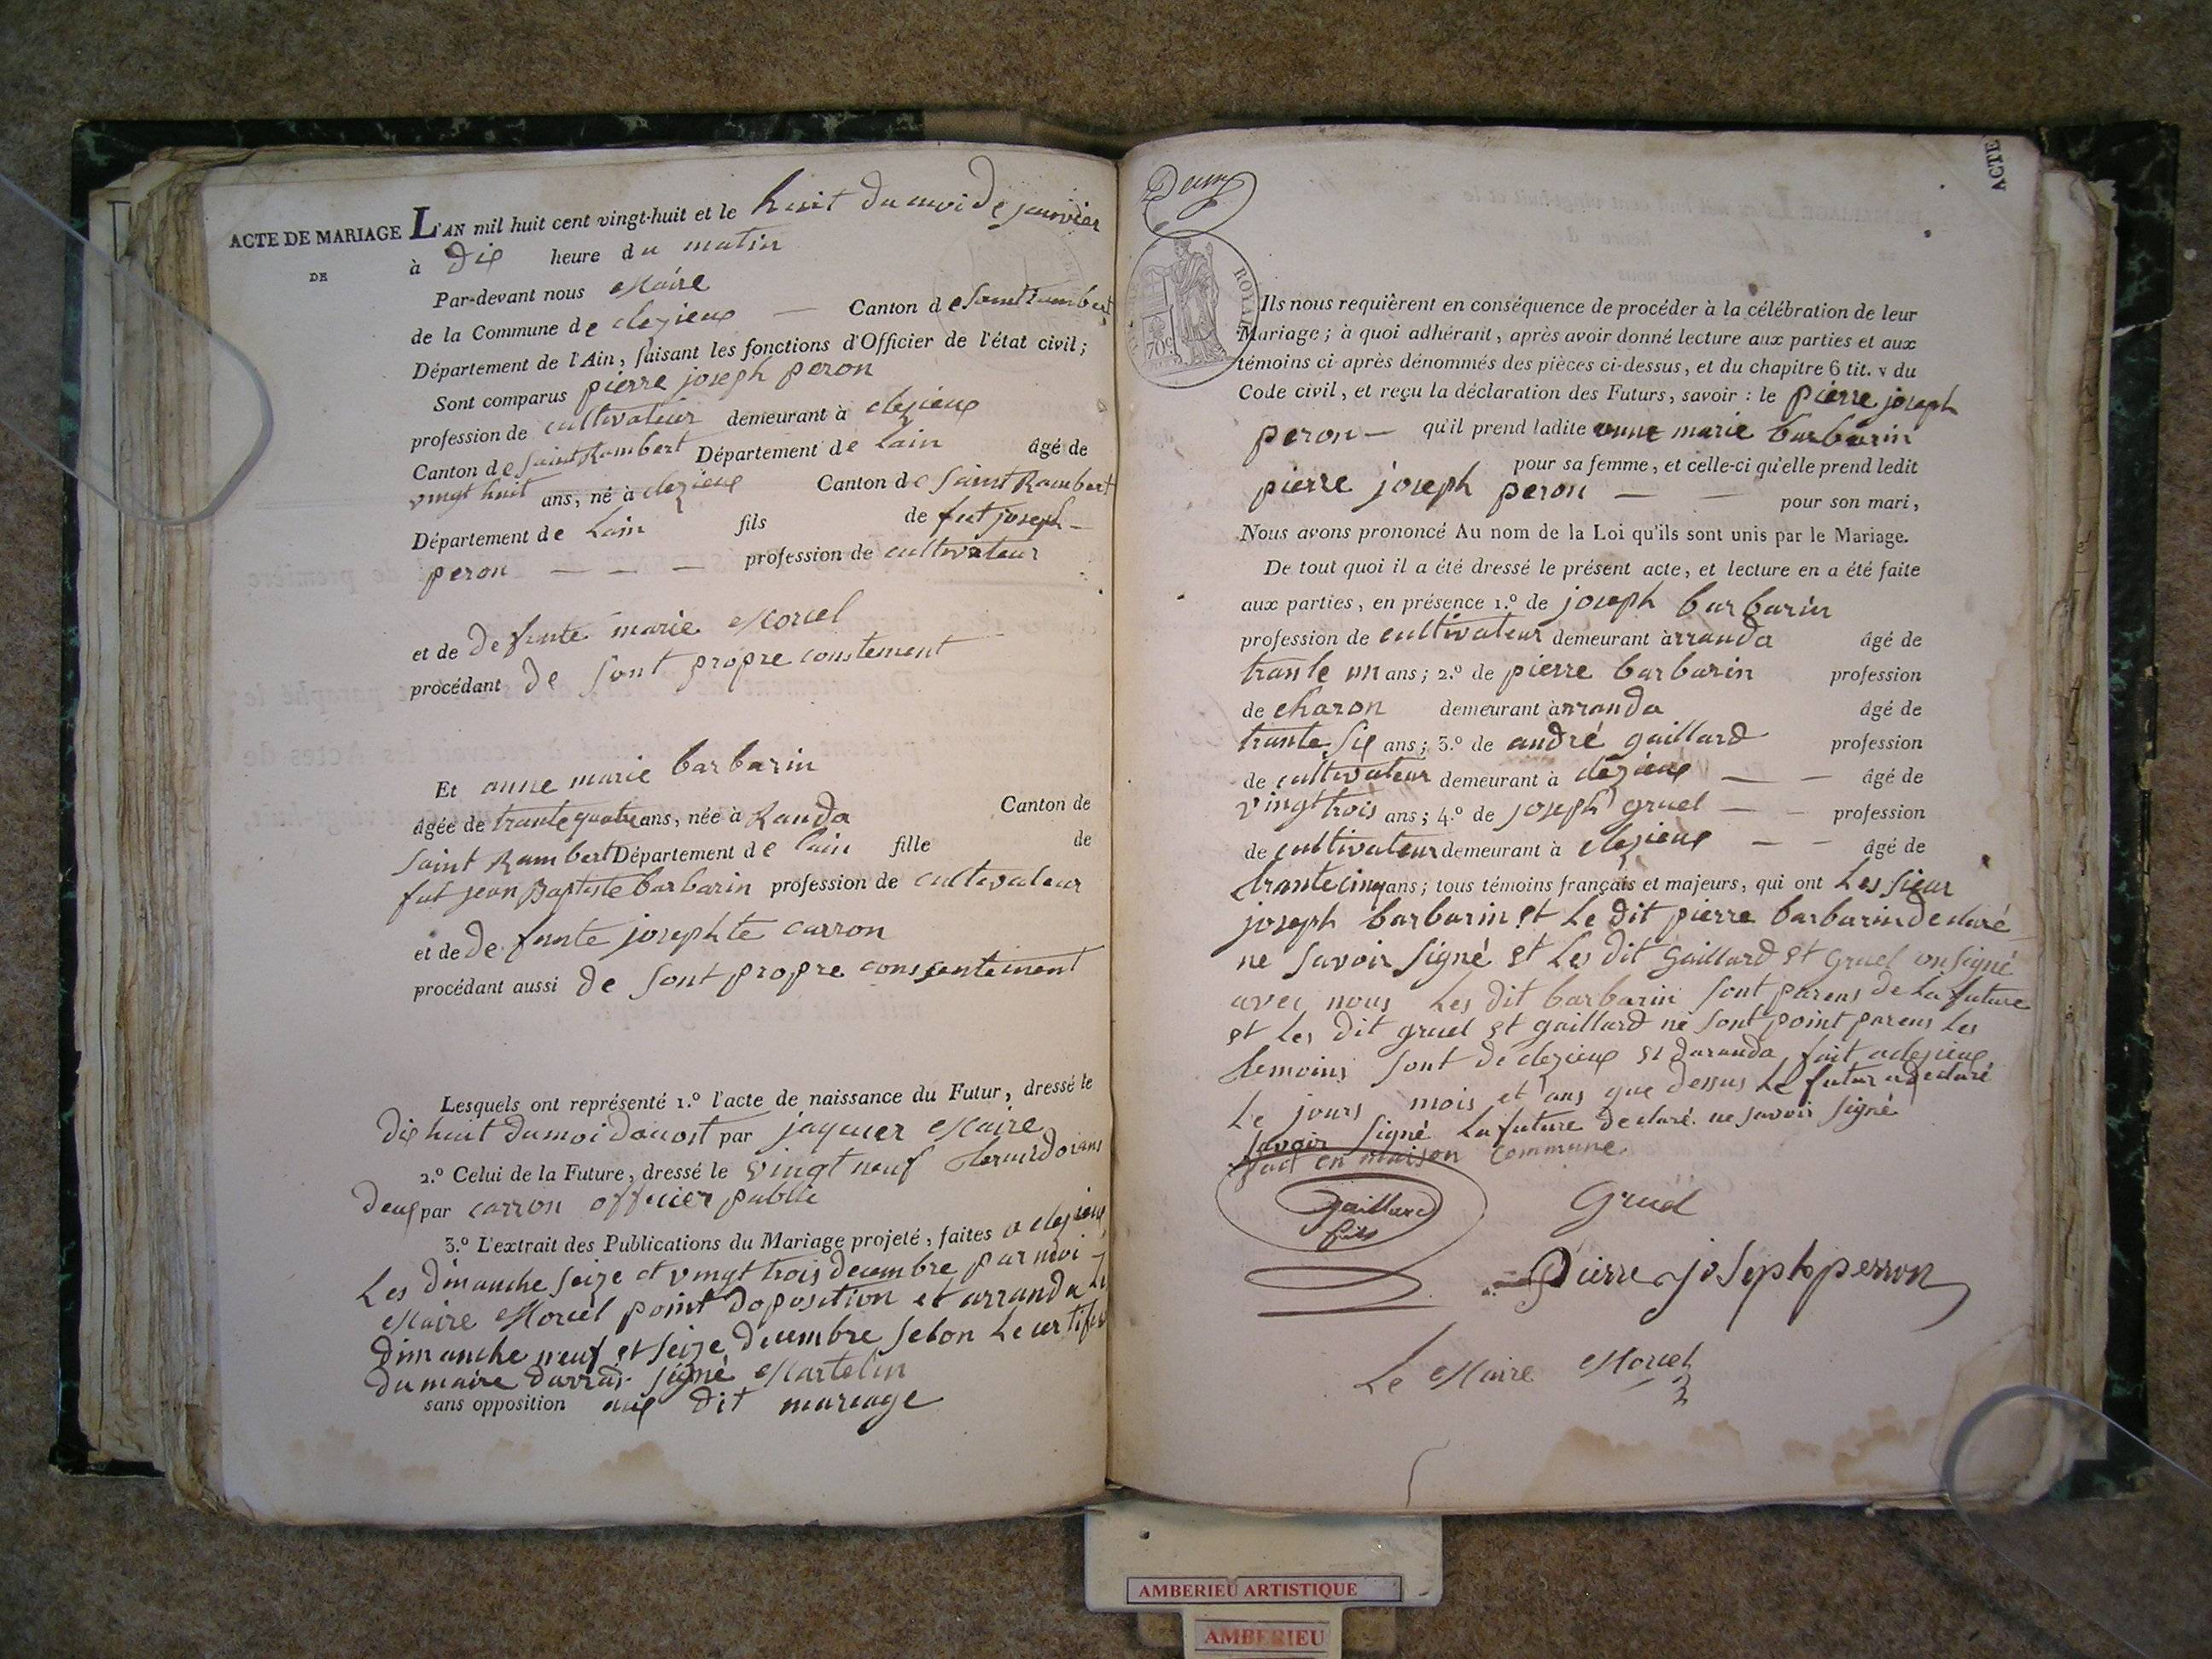 ACTE DE MARIAGE
DE
L'AN mil huit cent vingt-huit et le huit du moi de janvier
à dix heure du matin
Par-devant nous Maire
de la Commune de clezieux — Canton de Saint Rambert
Département de l'Ain, faisant les fonctions d'Officier de l'état civil;
Sont comparus pierre joseph peron
profession de cultivateur demeurant à clezieux
Canton de Saint Rambert Département de Lain âgé de
vingt huit ans, né à clezieux Canton de Saint Rambert
Département de Lain fils de fut joseph —
peron — — — profession de cultivateur
et de defunte marie Morcel
procédant de sont propre constement
Et anne marie barbarin
âgée de trante quatre ans, née à Randa Canton de
Saint Rambert Département de lain fille de
fut jean Baptiste barbarin profession de cultivateur
et de defunte josephte carron
procédant aussi de sont propre conssentement
Lesquels ont représenté 1.º l'acte de naissance du Futur, dressé le
dix huit du moi daoust par jaquier Maire
2.º Celui de la Future, dressé le vingt neuf
deux par carron officier public
3.º L'extrait des Publications du Mariage projeté, faites a clezieux
Les dimanche seize et vingt trois decembre par moi
Maire Morcel point doposition et arranda
dimanche neuf et seize decembre selon le certifi
du maire signé Martelin
sans opposition aux dit mariage
Deux
ROYAL
70c
ACTE
Ils nous requièrent en conséquence de procéder à la célébration de leur
Mariage; à quoi adhérant, après avoir donné lecture aux parties et aux
témoins ci-après dénommés des pièces ci-dessus, et du chapitre 6 tit. v du
Code civil, et reçu la déclaration des Futurs, savoir: le pierre joseph
peron — qu'il prend ladite anne marie barbarin
pour sa femme, et celle-ci qu'elle prend ledit
pierre joseph peron — — pour son mari,
Nous avons prononcé Au nom de la Loi qu'ils sont unis par le Mariage.
De tout quoi il a été dressé le présent acte, et lecture en a été faite
aux parties, en présence 1.º de joseph barbarin
profession de cultivateur demeurant àrranda âgé de
trante un ans; 2.º de pierre barbarin profession
de charon demeurant àrranda âgé de
trante six ans; 3.º de andré gaillard profession
de cultivateur demeurant à clezieux — — âgé de
vingt trois ans; 4.º de joseph gruel — — profession
de cultivateur demeurant à clezieux — — âgé de
trante cinq ans; tous témoins français et majeurs, qui ont Les sieur
joseph barbarin et Le dit pierre barbarin declaré
ne savoir signé et Les dit Gaillard et Gruel on signé
avec nous Les dit barbarin sont parens de La future
et Les dit gruel et gaillard ne sont point parens Les
temoins sont de clezieux et daranda fait a clezieux
Le jours mois et ans que dessus Le futur a declaré
savoir signé La future declaré ne savoir signé
fait en maison commune
gaillard
fils
Gruel
Pierre joseph perron
Le Maire Morcel
AMBERIEU ARTISTIQUE
AMBERIEU